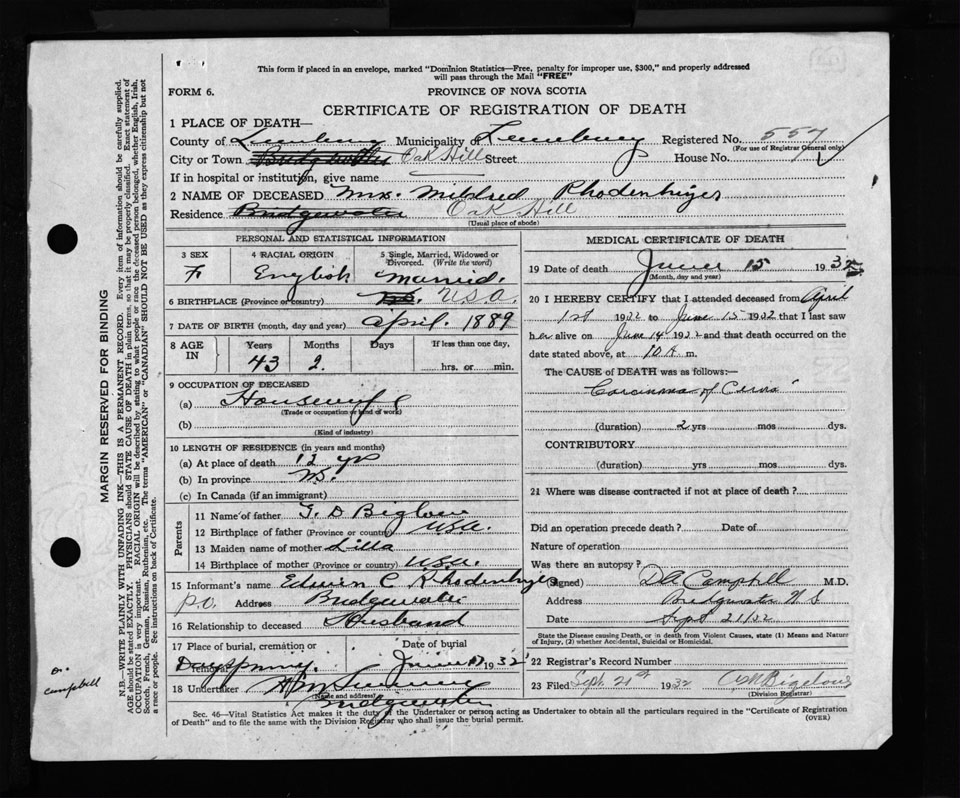 This form if placed in an envelope, marked "Dominion Statistics—Free, penalty for improper use, $300," and properly addressed
will pass through the Mail "FREE"
FORM 6.
PROVINCE OF NOVA SCOTIA
CERTIFICATE OF REGISTRATION OF DEATH
1 PLACE OF DEATH—
County of Lunenburg Municipality of Lunenburg Registered No. 557
(For use of Registrar General only)
City or Town Bridgewater Oak Hill Street House No.
If in hospital or institution, give name
2 NAME OF DECEASED Mrs. Mildred Rhodenhizer
Residence Bridgewater Oak Hill
(Usual place of abode)
PERSONAL AND STATISTICAL INFORMATION
3 SEX 4 RACIAL ORIGIN 5 Single, Married, Widowed or Divorced. (Write the word)
F English Married.
6 BIRTHPLACE (Province or country) N.S. U.S.A.
7 DATE OF BIRTH (month, day and year) April. 1889
8 AGE IN Years Months Days If less than one day,
43 2. hrs. or min.
9 OCCUPATION OF DECEASED
(a) Housewife
(Trade or occupation or kind of work)
(b)
(Kind of industry)
10 LENGTH OF RESIDENCE (in years and months)
(a) At place of death 12 yrs
(b) In province
(c) In Canada (if an immigrant)
Parents
11 Name of father T. D Biglow
12 Birthplace of father (Province or country) U.S.A.
13 Maiden name of mother Lilla
14 Birthplace of mother (Province or country) U.S.A.
15 Informant's name Edwin C Rhodenhyzer
P.O. Address Bridgewater
16 Relationship to deceased Husband
17 Place of burial, cremation or removal Date of burial
Dayspring. June 17 1932
18 Undertaker
(Name and address)
Bridgewater
MEDICAL CERTIFICATE OF DEATH
19 Date of death June 15 1932
(Month, day and year)
20 I HEREBY CERTIFY that I attended deceased from April
1st 1932 to June 15 1932 that I last saw
her alive on June 14 1932 and that death occurred on
date stated above, at 10 A m.
The CAUSE of DEATH was as follows:—
Carcinoma of
(duration) 2 yrs mos dys.
CONTRIBUTORY
(duration) yrs mos dys.
21 Where was disease contracted if not at place of death?
Did an operation precede death? Date of
Nature of operation
Was there an autopsy?
(Signed) D A Campbell M.D.
Address Bridgewater N S
Date Sept 21/32
State the Disease causing Death, or in death from Violent Causes, state (1) Means and Nature
of Injury, (2) whether Accidental, Suicidal or Homicidal.
22 Registrar's Record Number
23 Filed Sept. 21st 1932 Bigelow
(Division Registrar)
Sec. 46—Vital Statistics Act makes it the duty of the Undertaker or person acting as Undertaker to obtain all the particulars required in the "Certificate of Registration
of Death" and to file the same with the Division Registrar who shall issue the burial permit.
(OVER)
MARGIN RESERVED FOR BINDING
N.B.—WRITE PLAINLY WITH UNFADING INK—THIS IS A PERMANENT RECORD. Every item of information should be carefully supplied.
AGE should be stated EXACTLY. PHYSICIANS should STATE CAUSE OF DEATH in plain terms, so that it may be properly classified. Exact statement of
OCCUPATION is very important. RACIAL ORIGIN will be described by stating to what people or race the deceased person belonged, whether English, Irish,
Scotch, French, German, Russian, Ruthenian, etc. The terms "AMERICAN" or "CANADIAN" SHOULD NOT BE USED as they express citizenship but not
a race or people. See instructions on back of Certificate.
Dr. Campbell